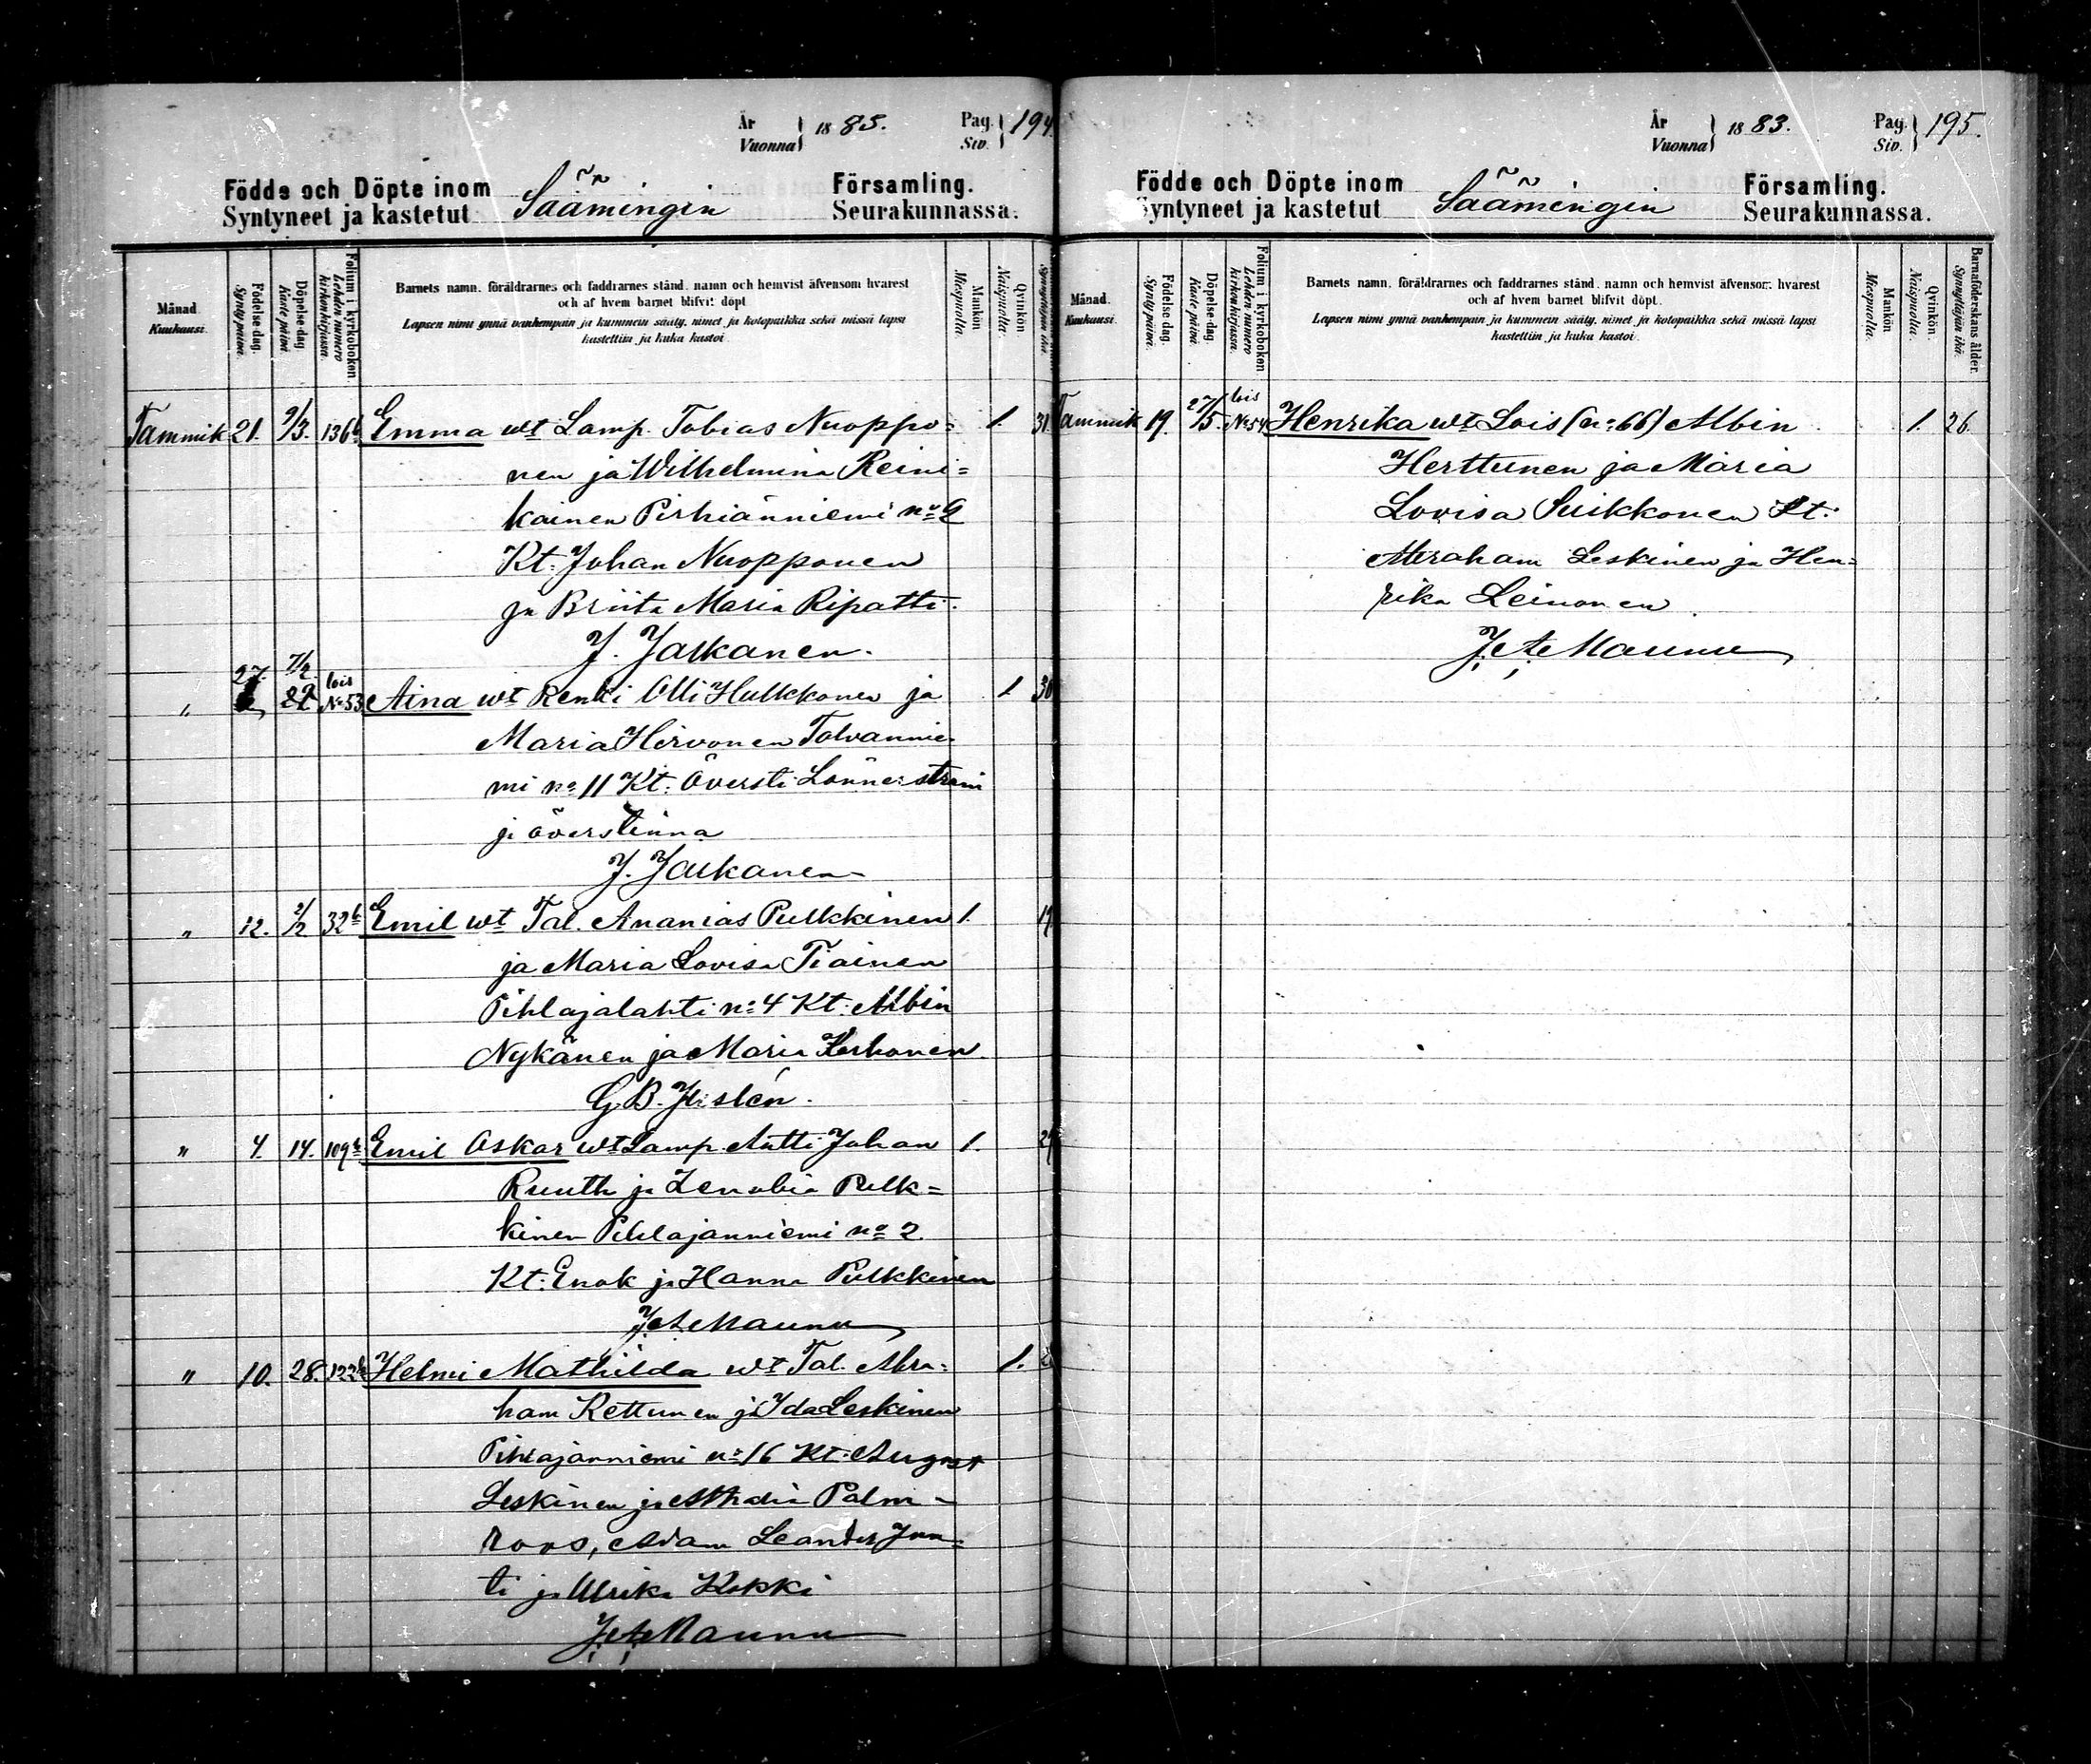 År
Vuonna } 1883. Pag.
Siv. } 194.
Födde och Döpte inom Säämingin Församling.
Syntyneet ja kastetut Seurakunnassa.
Månad. Kuukausi.
Födelse dag. Synty päivä.
Döpelse dag. Kaste päivä.
Folium i kyrkoboken. Lehden numero kirkonkirjassa.
Barnets namn, föräldrarnes och faddrarnes stånd, namn och hemvist äfvensom hvarest
och af hvem barnet blifvit döpt.
Lapsen nimi ynnä vanhempain ja kummein sääty, nimet ja kotopaikka sekä missä lapsi
kastettiin ja kuka kastoi.
Mankön. Miespuolta.
Qvinkön. Naispuolta.
Tammik 21. 9/3. 136b Emma wt Lamp. Tobias Nuoppo= 1. 31
nen ja Wilhelmina Reini=
kainen Pirhiänniemi no 9
Kt: Johan Nuopponen
ja Briita Maria Ripatti.
J. Jaskanen.
" 27. 7/2. lois No 53 Aina wt Renki Olli Hulkkonen ja 1 30
Maria Hirvonen Tolvannie-
mi no 11 Kt: Översti Lönnerström
ja överstinna
J. Jaskanen
" 12. 2/2 32b Emil wt Tal. Ananias Pulkkinen 1. 19
ja Maria Lovisa Tiainen
Pihlajalahti no 4 Kt: Albin
Nykänen ja Maria Kerhonen
G B. Hislén.
" 4. 14. 109b Emil Oskar wt Lamp. Antti Johan 1. 29
Ruuth ja Zenobia Pulk=
kinen Pihlajanniemi no 2.
Kt: Enok ja Hanna Pulkkinen
J. A. Maunu
" 10. 28. 122b Helmi Mathilda wt Tal. Abra= 1.
ham Kettunen ja Ida Leskinen
Pihlajanniemi no 16 Kt: August
Leskinen ja Palm-
roos, Adam Leander Jun-
ti ja Ulrika Kokki
J. A. Maunu
År
Vuonna } 1883. Pag.
Siv. } 195.
Födde och Döpte inom Säämingin Församling.
Syntyneet ja kastetut Seurakunnassa.
Månad. Kuukausi.
Födelse dag. Synty päivä.
Döpelse dag. Kaste päivä.
Folium i kyrkoboken. Lehden numero kirkonkirjassa.
Barnets namn, föräldrarnes och faddrarnes stånd, namn och hemvist äfvensom hvarest
och af hvem barnet blifvit döpt.
Lapsen nimi ynnä vanhempain ja kummein sääty, nimet ja kotopaikka sekä missä lapsi
kastettiin ja kuka kastoi.
Mankön. Miespuolta.
Qvinkön. Naispuolta.
Barnaföderskans ålder. Synnyttäjän ikä.
Tammik 19. 27/5. lois No 54 Henrika wt Lois (no 66) Albin 1. 26.
Herttunen ja Maria
Lovisa Suikkonen Kt:
Abraham Leskinen ja Hen=
rika Leinonen.
J. A. Maunu